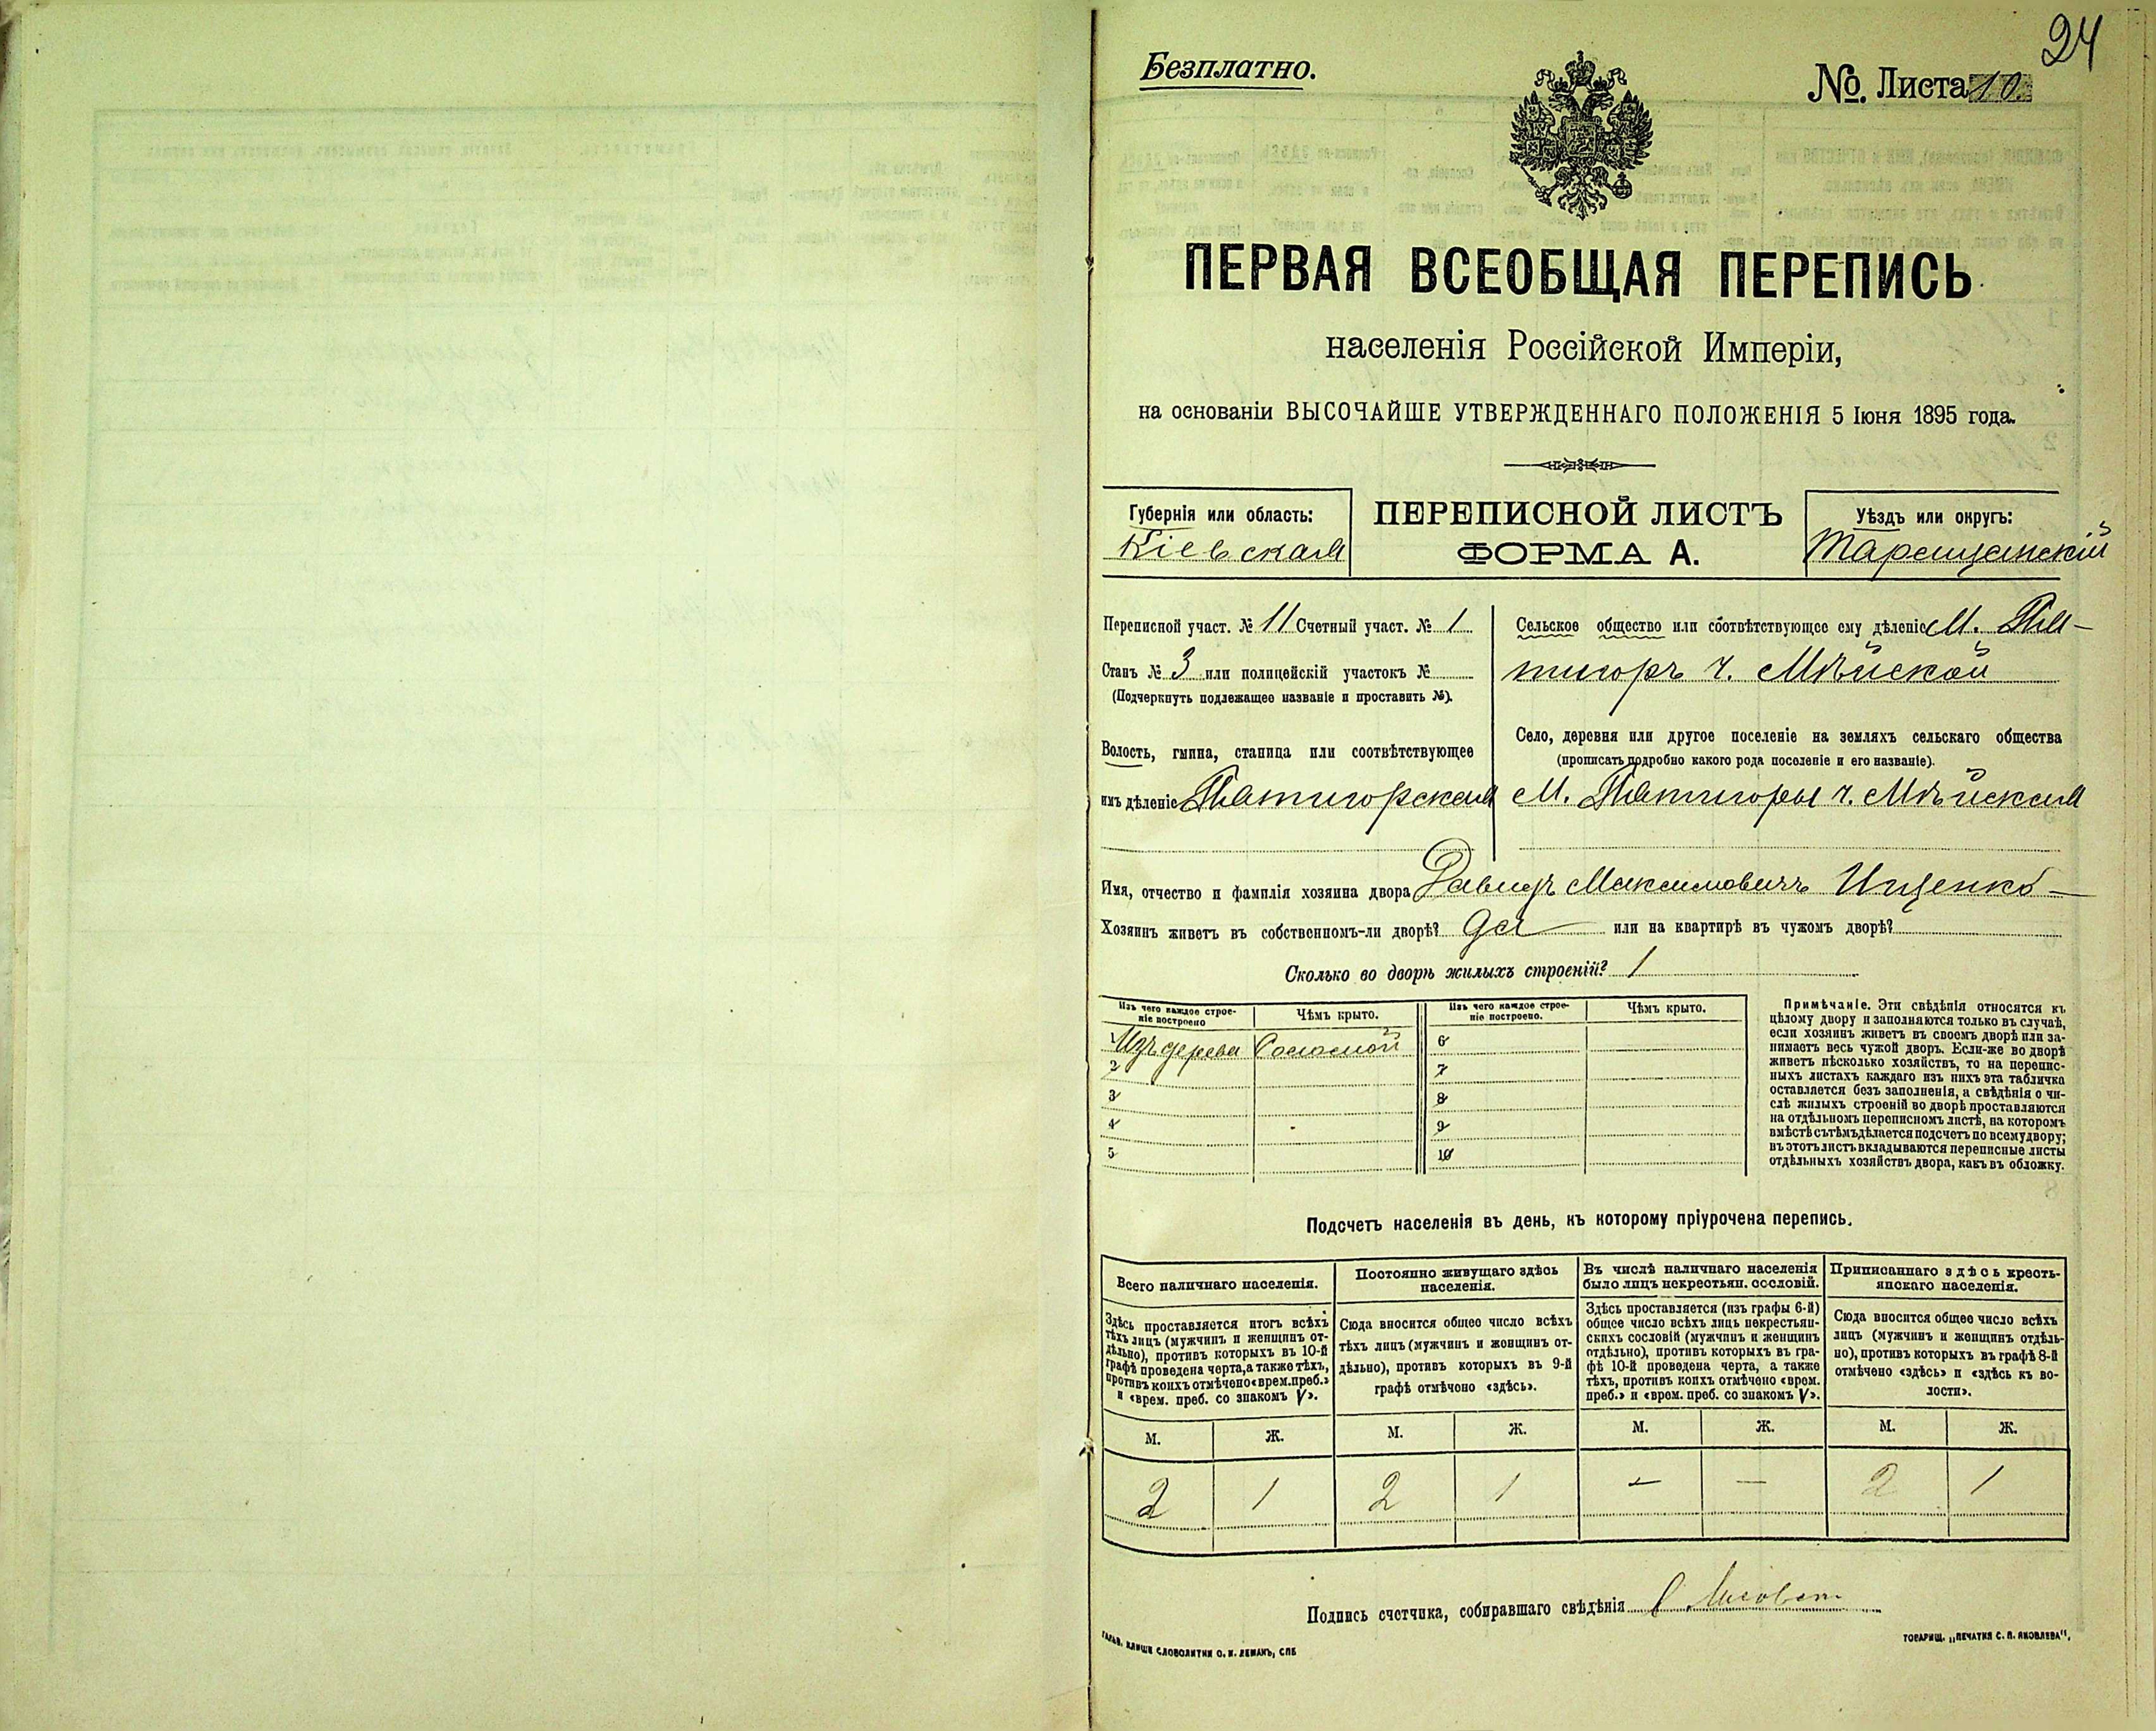 24
Безплатно.
№. Листа 10.
ПЕРВАЯ ВСЕОБЩАЯ ПЕРЕПИСЬ
населенія Россійской Имперіи,
на основаніи ВЫСОЧАЙШЕ УТВЕРЖДЕННАГО ПОЛОЖЕНІЯ 5 Іюня 1895 года.
Губернія или область:
Кіевская
ПЕРЕПИСНОЙ ЛИСТЪ
ФОРМА А.
Уѣздъ или округъ:
Таращанскій
Переписной участ. № 11 Счетный участ. № 1
Станъ № 3 или полицейскій участокъ №
(Подчеркнуть подлежащее названіе и проставить №).
Волость, гмина, станица или соотвѣтствующее
имъ дѣленіе Пятигорская
Сельское общество или соотвѣтствующее ему дѣленіе М. Пя-
тигоръ ч.
Село, деревня или другое поселеніе на земляхъ сельскаго общества
(прописать подробно какого рода поселеніе и его названіе).
М. Пятигоры ч.
Имя, отчество и фамилія хозяина двора Давидъ Максимовичъ Ищенко
Хозяинъ живетъ въ собственномъ-ли дворѣ? да или на квартирѣ въ чужомъ дворѣ?
Сколько во дворѣ жилыхъ строеній? 1
Изъ чего каждое строе-
ніе построено
Чѣмъ крыто.
Изъ чего каждое строе-
ніе построено.
Чѣмъ крыто.
Изъ дерева Соломой
2
3
4
5
6
7
8
9
10
Примѣчаніе. Эти свѣдѣнія относятся къ
цѣлому двору и заполняются только въ случаѣ,
если хозяинъ живетъ въ своемъ дворѣ или за-
нимаетъ весь чужой дворъ. Если-же во дворѣ
живетъ нѣсколько хозяйствъ, то на перепис-
ныхъ листахъ каждаго изъ нихъ эта табличка
оставляется безъ заполненія, а свѣдѣнія о чи-
слѣ жилыхъ строеній во дворѣ проставляются
на отдѣльномъ переписномъ листѣ, на которомъ
вмѣстѣ съ тѣмъ дѣлается подсчетъ по всему двору;
въ этотъ листъ вкладываются переписные листы
отдѣльныхъ хозяйствъ двора, какъ въ обложку.
Подсчетъ населенія въ день, къ которому пріурочена перепись.
Всего наличнаго населенія.
Здѣсь проставляется итогъ всѣхъ
тѣхъ лицъ (мужчинъ и женщинъ от-
дѣльно), противъ которыхъ въ 10-й
графѣ проведена черта, а также тѣхъ,
противъ коихъ отмѣчено «врем. преб.»
и «врем. преб. со знакомъ V».
Постоянно живущаго здѣсь
населенія.
Сюда вносится общее число всѣхъ
тѣхъ лицъ (мужчинъ и женщинъ от-
дѣльно), противъ которыхъ въ 9-й
графѣ отмѣчено «здѣсь».
Въ числѣ наличнаго населенія
было лицъ некрестьян. сословій.
Здѣсь проставляется (изъ графы 6-й)
общее число всѣхъ лицъ некрестьян-
скихъ сословій (мужчинъ и женщинъ
отдѣльно), противъ которыхъ въ гра-
фѣ 10-й проведена черта, а также
тѣхъ, противъ коихъ отмѣчено «врем.
преб.» и «врем. преб. со знакомъ V».
Приписаннаго здѣсь кресть-
янскаго населенія.
Сюда вносится общее число всѣхъ
лицъ (мужчинъ и женщинъ отдѣль-
но), противъ которыхъ въ графѣ 8-й
отмѣчено «здѣсь» и «здѣсь къ во-
лости».
М. Ж. М. Ж. М. Ж. М. Ж.
2 1 2 1 — — 2 1
Подпись счетчика, собиравшаго свѣдѣнія
ГАЛЬВ. КЛИШЕ СЛОВОЛИТНИ О. И. ЛЕМАНЪ, СПБ
ТОВАРИЩ. „ПЕЧАТНЯ С. П. ЯКОВЛЕВА",